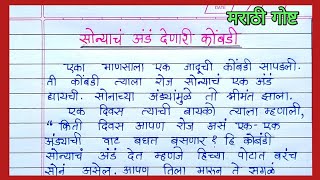 मराठी गोष्ट
सोन्याचं अंडं देणारी कोंबडी
एका माणसाला एक जादूची कोंबडी सापडली.
ती कोंबडी त्याला रोज सोन्याचं एक अंडं
द्यायची. सोनाच्या अंड्यांमुळे तो श्रीमंत झाला.
एक दिवस त्याची बायको त्याला म्हणाली,
"किती दिवस आपण रोज असं एक-एक
अंड्याची वाट बघत बसणार? हि कोंबडी
सोन्याचं अंडं देत म्हणजे हिच्या पोटात बरंच
सोनं असेल. आपण तिला मारून ते सगळं